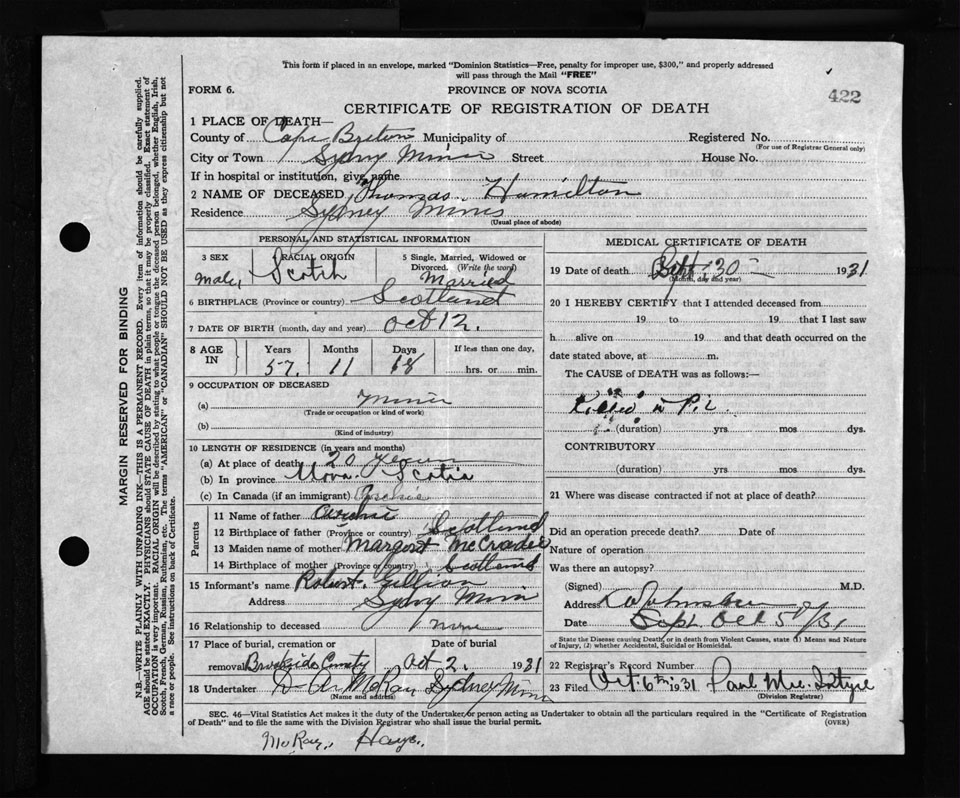 This form if placed in an envelope, marked "Dominion Statistics—Free, penalty for improper use, $300," and properly addressed
will pass through the Mail "FREE"
FORM 6.
PROVINCE OF NOVA SCOTIA
422
CERTIFICATE OF REGISTRATION OF DEATH
1 PLACE OF DEATH—
County of Cape Breton Municipality of Registered No.
(For use of Registrar General only)
City or Town Sydney Mines Street House No.
If in hospital or institution, give name
2 NAME OF DECEASED Thomas Hamilton
Residence Sydney Mines
(Usual place of abode)
PERSONAL AND STATISTICAL INFORMATION
3 SEX
Male,
RACIAL ORIGIN
Scotch
5 Single, Married, Widowed or
Divorced. (Write the word)
Married
6 BIRTHPLACE (Province or country) Scotland
7 DATE OF BIRTH (month, day and year) Oct 12.
8 AGE IN
Years Months Days If less than one day,
57. 11 18 hrs. or min.
9 OCCUPATION OF DECEASED
(a) Miner
(Trade or occupation or kind of work)
(b)
(Kind of industry)
10 LENGTH OF RESIDENCE (in years and months)
(a) At place of death 20 Years
(b) In province Nova Scotia
(c) In Canada (if an immigrant) Archie
Parents
11 Name of father Archie
12 Birthplace of father (Province or country) Scotland
13 Maiden name of mother Margaret McCradie
14 Birthplace of mother (Province or country) Scotland
15 Informant's name Robert
Address Sydney Mines
16 Relationship to deceased none
17 Place of burial, cremation or Date of burial
removal Brookside Oct 2. 1931
18 Undertaker McRay Sydney Mines
(Name and address)
MEDICAL CERTIFICATE OF DEATH
19 Date of death Sept. 30 1931
(Month, day and year)
20 I HEREBY CERTIFY that I attended deceased from
19 to 19 that I last saw
h alive on 19 and that death occurred on the
date stated above, at m.
The CAUSE of DEATH was as follows:—
Killed in Pit
(duration) yrs mos dys.
CONTRIBUTORY
(duration) yrs mos dys.
21 Where was disease contracted if not at place of death?
Did an operation precede death? Date of
Nature of operation
Was there an autopsy?
(Signed) M.D.
Address
Date Sept. Oct 5/31
State the Disease causing Death, or in death from Violent Causes, state (1) Means and Nature
of Injury, (2) whether Accidental, Suicidal or Homicidal.
22 Registrar's Record Number
23 Filed Oct. 6th 1931 Paul
(Division Registrar)
SEC. 46—Vital Statistics Act makes it the duty of the Undertaker or person acting as Undertaker to obtain all the particulars required in the "Certificate of Registration
of Death" and to file the same with the Division Registrar who shall issue the burial permit.
(OVER)
McRay,
MARGIN RESERVED FOR BINDING
N.B.—WRITE PLAINLY WITH UNFADING INK—THIS IS A PERMANENT RECORD. Every item of information should be carefully supplied.
AGE should be stated EXACTLY. PHYSICIANS should STATE CAUSE OF DEATH in plain terms, so that it may be properly classified. Exact statement of
OCCUPATION is very important. RACIAL ORIGIN will be described by stating to what people or tongue the deceased person belonged, whether English, Irish,
Scotch, French, German, Russian, Ruthenian, etc. The terms "AMERICAN" or "CANADIAN" SHOULD NOT BE USED as they express citizenship but not
a race or people. See instructions on back of Certificate.